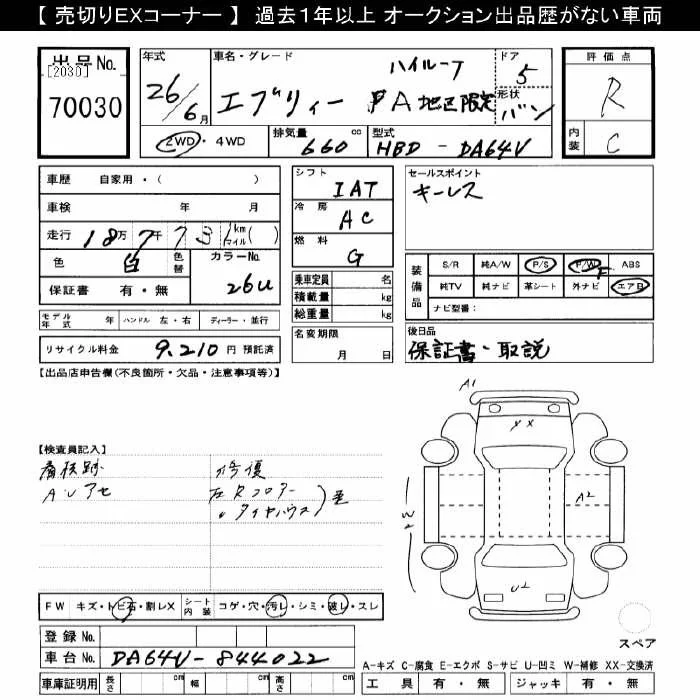 【 売切りEXコーナー 】 過去1年以上 オークション出品歴がない車両
出品No.
[2030]
70030
年式
26/6月
車名・グレード
ハイルーフ
エブリィー PA 地区限定
ドア
5
形状
バン
評価点
R
内装
C
2WD・4WD
排気量
660 cc
型式
HBD - DA64V
車歴 自家用・( )
車検 年 月
走行 18万 7千 73 1 km マイル( )
色 白 色替
カラーNo.
26U
保証書 有・無
モデル年式 年 ハンドル 左・右 ディーラー・並行
リサイクル料金 9,210 円 預託済
シフト
IAT
冷房
AC
燃料
G
乗車定員 名
積載量 kg
総重量 kg
名変期限
月 日
セールスポイント
キーレス
装備品
S/R 純A/W P/S P/W ABS
純TV 純ナビ 革シート 外ナビ エアB
F
ナビ型番:
後日品
保証書・取説
【出品店申告欄(不良箇所・欠品・注意事項等)】
【検査員記入】
修復
A・U アセ
左Rフロアー
〃タイヤハウス
A1
XX
A2
W2
U2
スペア
FW キズ・トビ石・割レX シート内装 コゲ・穴・汚レ・シミ・破レ・スレ
登録No.
車台No. DA64V-844022
車庫証明用 長さ cm 幅 cm 高さ cm
A-キズ C-腐食 E-エクボ S-サビ U-凹ミ W-補修 XX-交換済
工具 有・無 ジャッキ 有・無